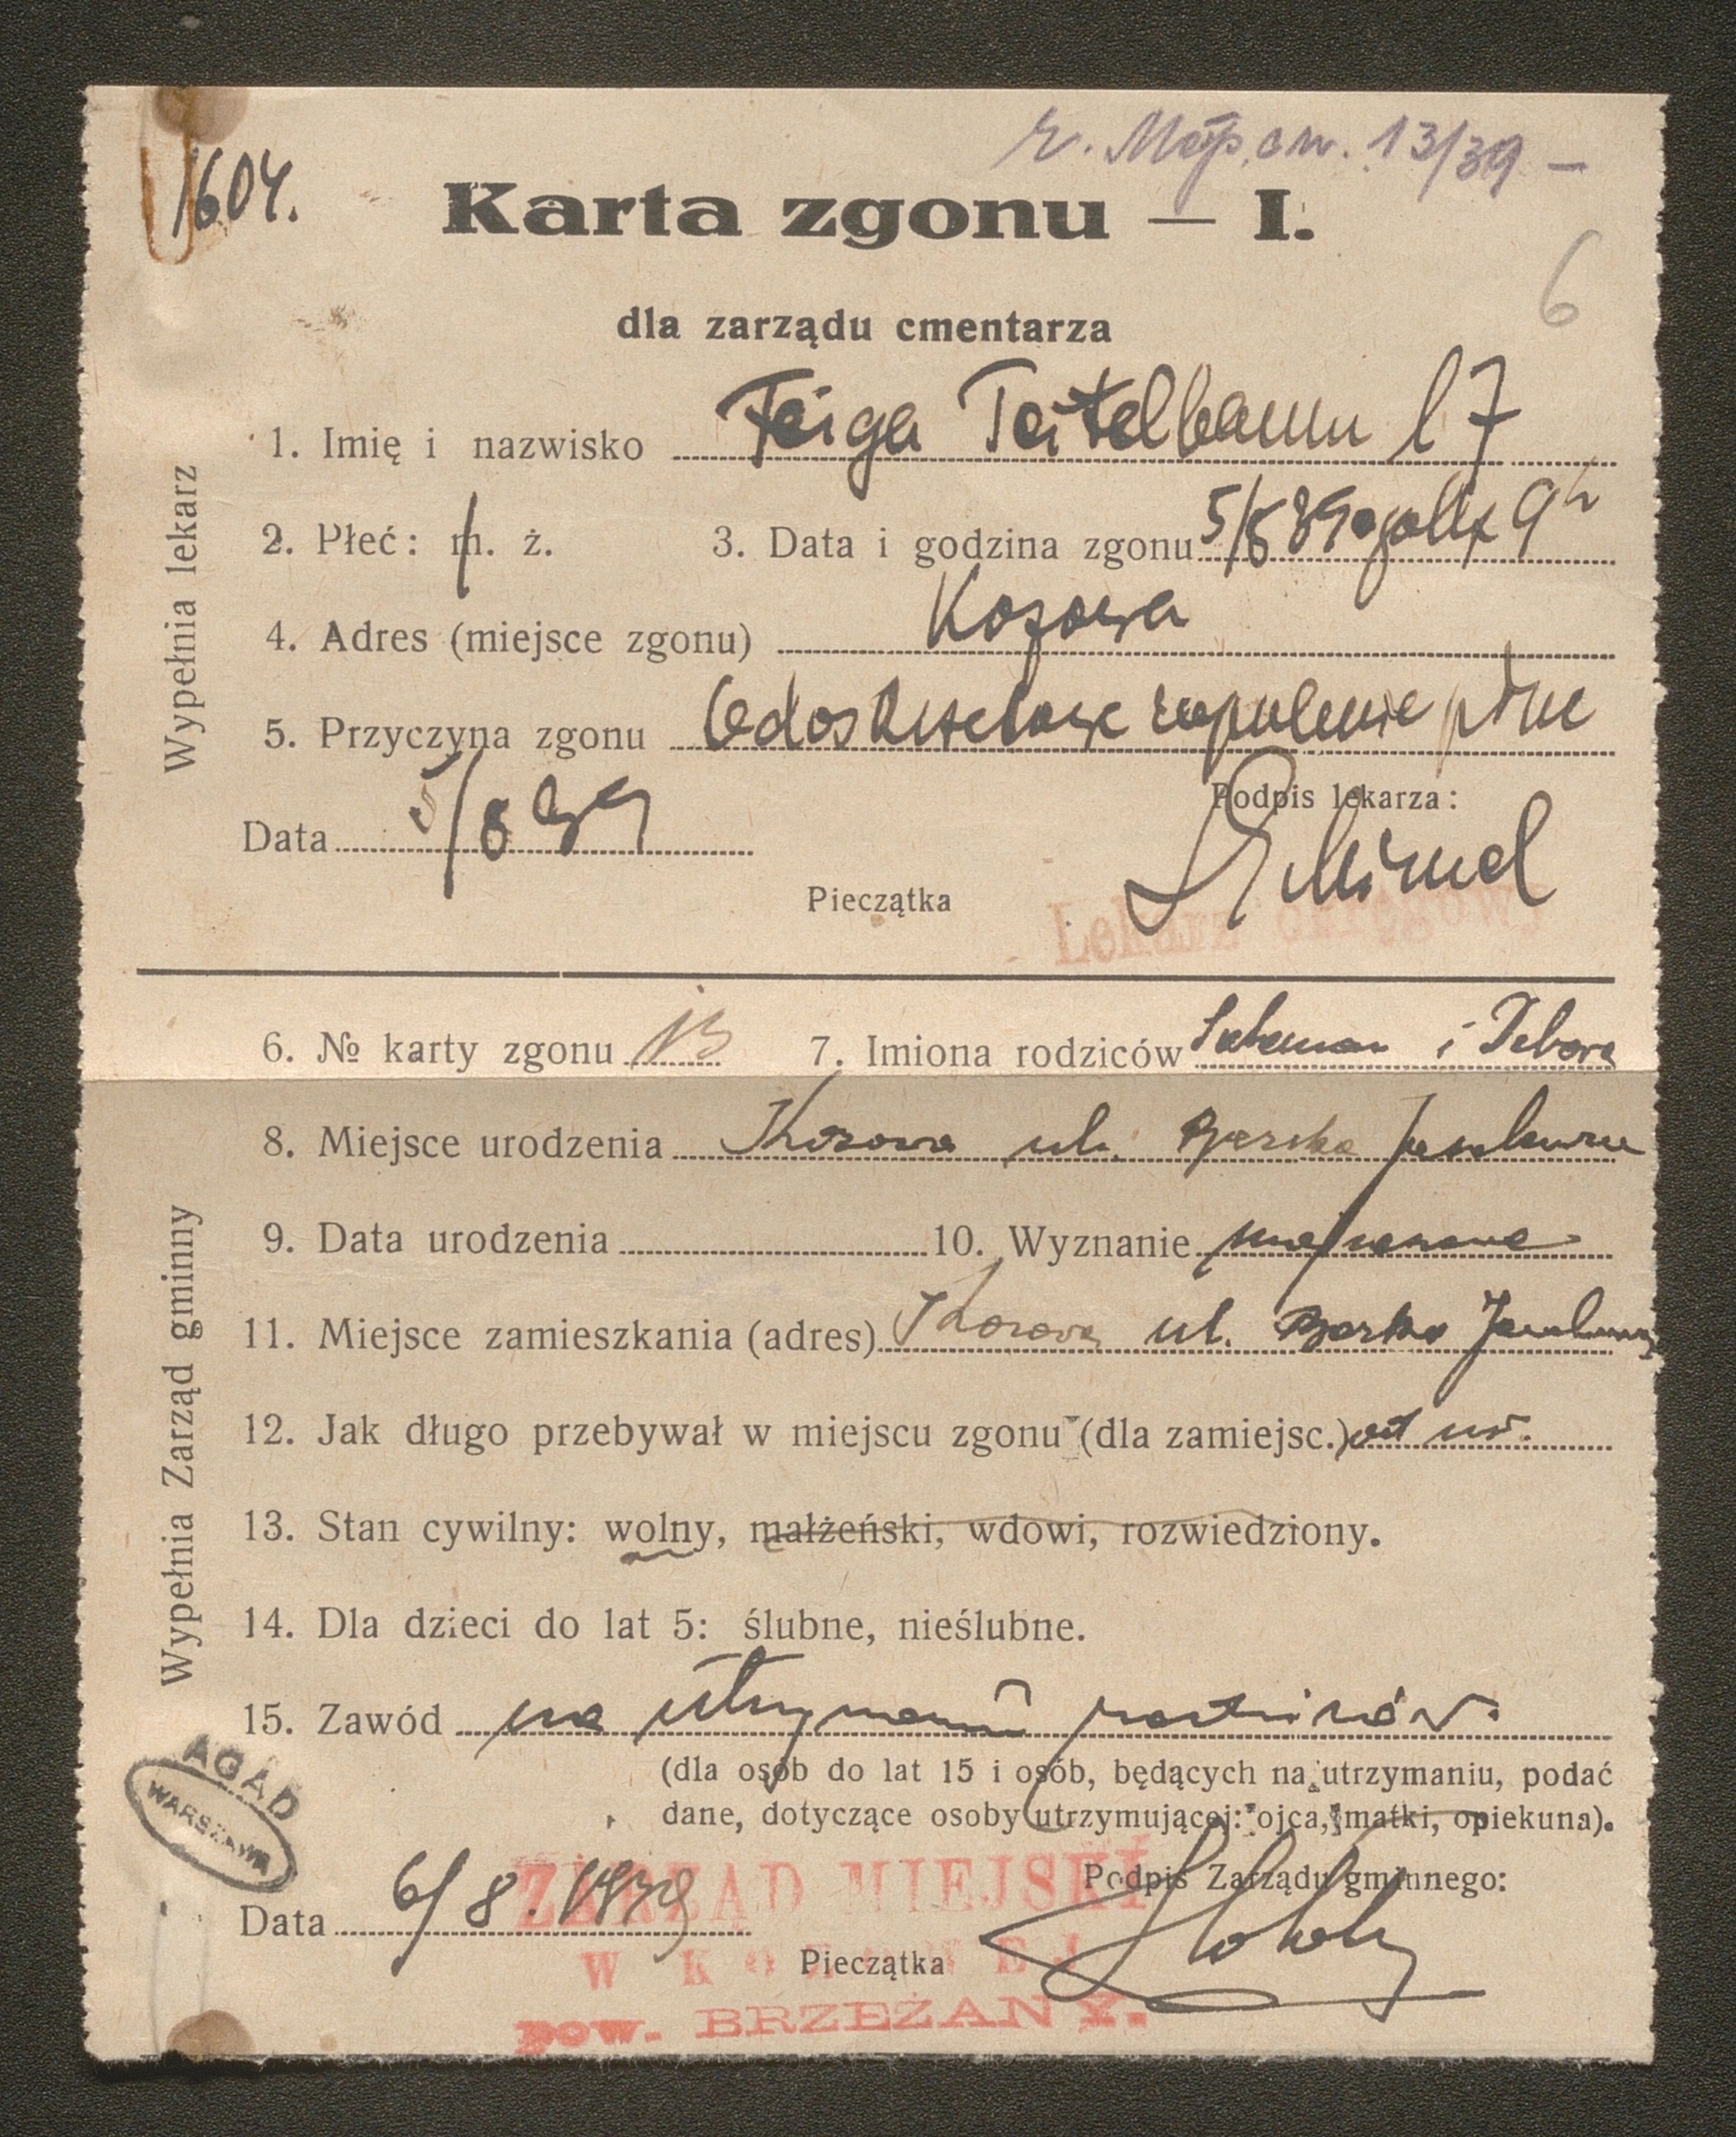 1604.
13/39 —
Karta zgonu — I.
6
dla zarządu cmentarza
Wypełnia lekarz
1. Imię i nazwisko Feiga Teitelbaum l 7
2. Płeć: m. ż. 3. Data i godzina zgonu 5/8 39 o godz 9h
4. Adres (miejsce zgonu) Kozowa
5. Przyczyna zgonu Odoskrzelowe zapalenie płuc
Podpis lekarza:
Data 5/8 39
Pieczątka
Lekarz okręgowy
6. № karty zgonu 13 7. Imiona rodziców i Debora
Wypełnia Zarząd gminny
8. Miejsce urodzenia Kozowa ul.
9. Data urodzenia 10. Wyznanie mojżeszowe
11. Miejsce zamieszkania (adres) Kozowa ul.
12. Jak długo przebywał w miejscu zgonu (dla zamiejsc.) od ur.
13. Stan cywilny: wolny, małżeński, wdowi, rozwiedziony.
14. Dla dzieci do lat 5: ślubne, nieślubne.
15. Zawód na utrzymaniu rodziców.
(dla osób do lat 15 i osób, będących na utrzymaniu, podać
dane, dotyczące osoby utrzymującej: ojca, matki, opiekuna).
AGAD
WARSZAWA
ZARZĄD MIEJSKI
Podpis Zarządu gminnego:
Data 6/8. 1939
W KOZOWEJ
Pieczątka
pow. BRZEŻANY.